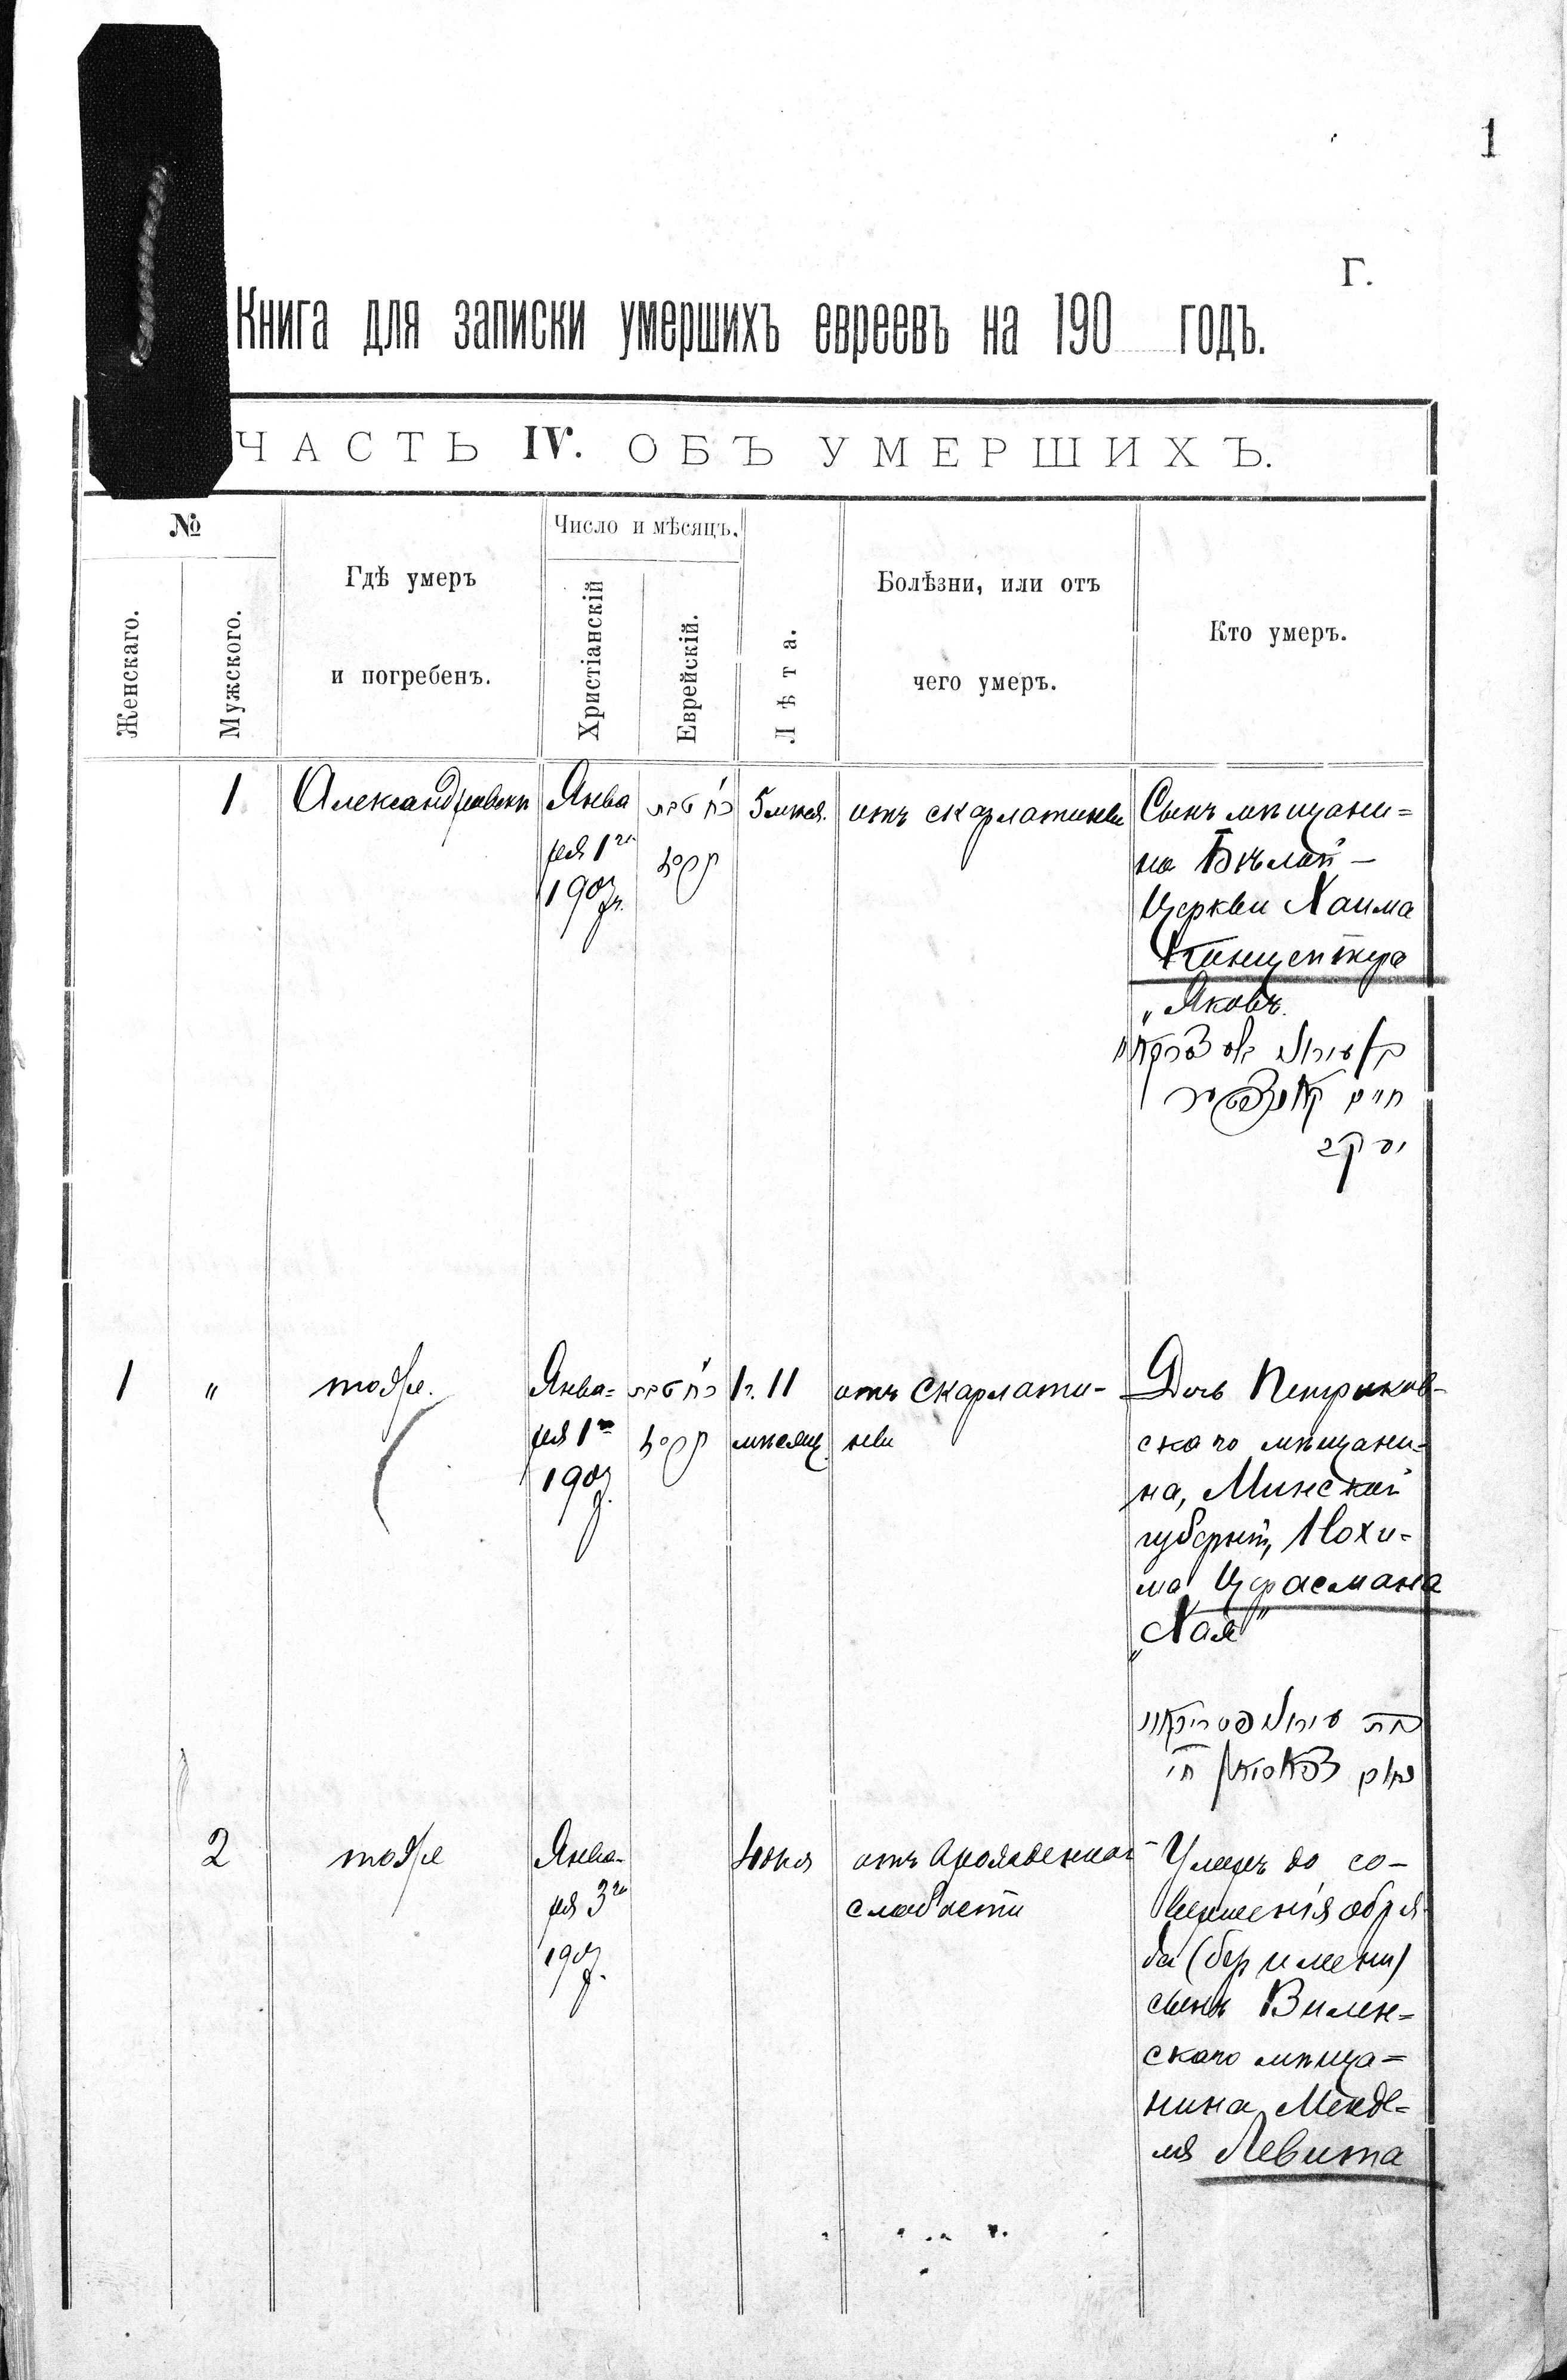 1
Г.
Книга для записки умершихъ евреевъ на 190 годъ.
ЧАСТЬ IV. ОБЪ УМЕРШИХЪ.
№
Женскаго.
Мужского.
Гдѣ умеръ
и погребенъ.
Число и мѣсяцъ.
Христіанскій
Еврейскій.
Лѣта.
Болѣзни, или отъ
чего умеръ.
Кто умеръ.
1
Александровскъ
Янва
ря 1го
כ"ח טבת
5 мѣся.
отъ скарлатины
Сынъ мѣщани=
на Бѣлой-
Церкви Хаима
"Яковъ
חיים
יעקב
1
"
тодѣ.
Янва=
ря 1го
כ"ח טבת
1 г. 11
мѣсяц.
отъ скарлати-
ны
Дочь Петриков-
скаго мѣщани-
на, Минской
губерніи, Нохи-
ма Цфасмана
"Хая"
בת
נחום חי'
2
Янва-
ря 3го
4 дня
слабости
Умеръ до со-
вершенія обря-
да (без имени)
сынъ Вилен=
скаго мѣща=
нина Менде=
ля Левита